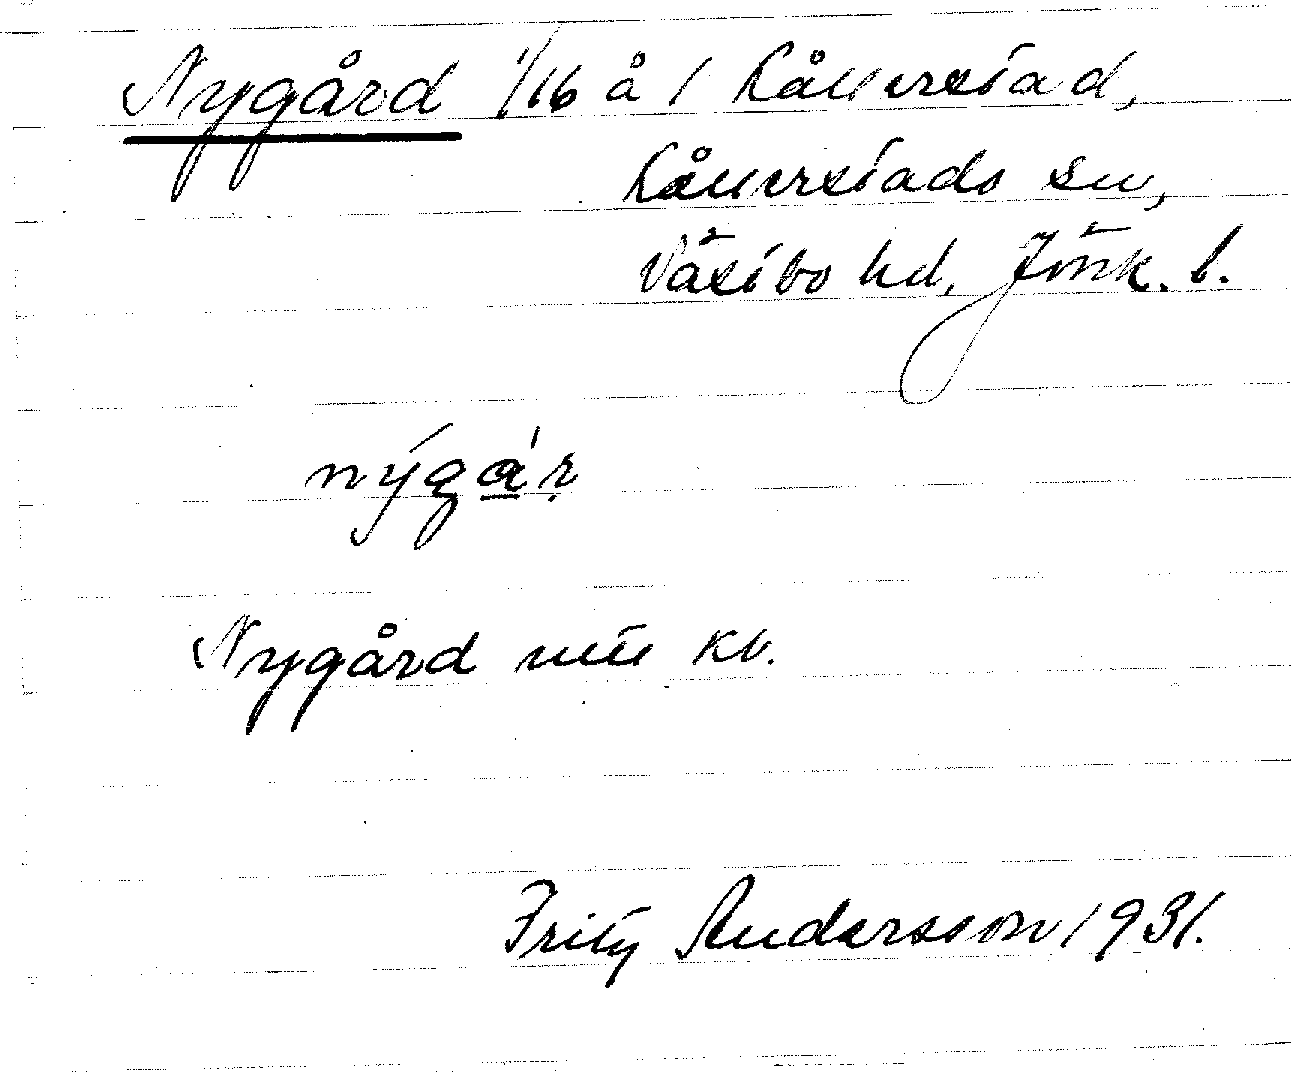 Nygård 1/16 å 1 Kållerstad,
Kållerstads sn,
Västbo hd, Jönk. l.
nýgá'r
Nygård mtl kb.
Fritz Andersson 1931.